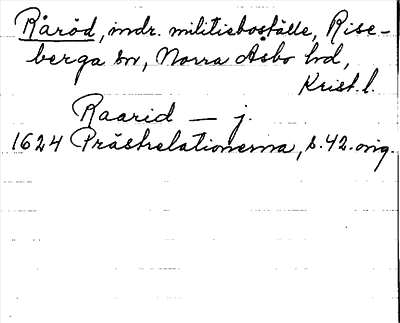 Råröd, indr. militieboställe, Rise-
berga sn, Norra Åsbo hd,
Krist. l.
Raarid — j.
1624 Prästrelationerna, s. 42. orig.